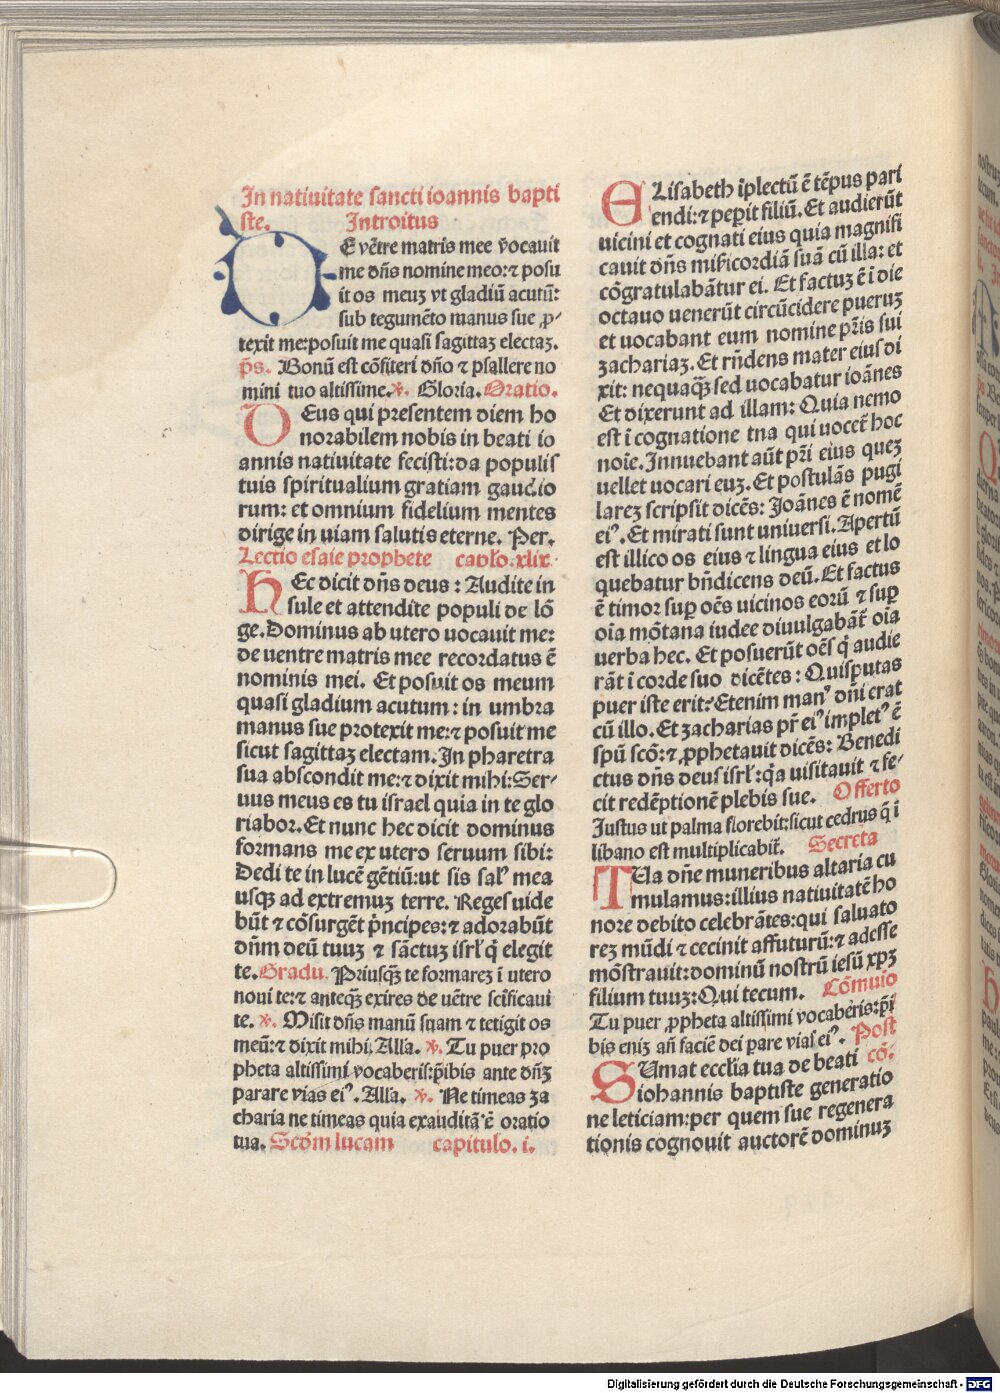 In natiuitate sancti ioannis bapti
ste. Introitus
DE vētre matris mee vocauit
me dñs nomine meo:⁊ posu
it os meuʒ vt gladiū acutū:
sub tegumēto manus sue ꝓ-
texit me:posuit me quasi sagittaʒ electaʒ.
p̄s. Bonū est cōfiteri dño ⁊ psallere no
mini tuo altissime. ℣. Gloria. Oratio.
DEus qui presentem diem ho
norabilem nobis in beati io
annis natiuitate fecisti:da populis
tuis spiritualium gratiam gaudio
rum: et omnium fidelium mentes
dirige in uiam salutis eterne. Per.
Lectio esaie prophete capl'o.xlix.
HEc dicit dñs deus: Audite in
sule et attendite populi de lō
ge. Dominus ab utero uocauit me:
de uentre matris mee recordatus ē
nominis mei. Et posuit os meum
quasi gladium acutum: in umbra
manus sue protexit me:⁊ posuit me
sicut sagittaʒ electam. In pharetra
sua abscondit me:⁊ dixit mihi:Ser-
uus meus es tu israel quia in te glo
riabor. Et nunc hec dicit dominus
formans me ex utero seruum sibi:
Dedi te in lucē gētiū:ut sis sal⁹ mea
usqꝫ ad extremuʒ terre. Reges uide
būt ⁊ cōsurgēt p̄ncipes:⁊ adorabūt
dñm deū tuuʒ ⁊ sāctuʒ isrl' q̄ elegit
te. Gradu. Priusqꝫ te formareʒ ī utero
noui te:⁊ anteqꝫ exires de uētre scīficaui
te. ℣. Misit dñs manū suam ⁊ tetigit os
meū:⁊ dixit mihi. Alla. ℣. Tu puer pro
pheta altissimi vocaberis:p̄ibis ante dñʒ
parare vias ei⁹. Alla. ℣. Ne timeas ʒa
charia ne timeas quia exaudita ē oratio
tua. Scḋm lucam capitulo. i.
ELisabeth īplectū ē tēpus pari
endi:⁊ peꝑit filiū. Et audierūt
uicini et cognati eius quia magnifi
cauit dñs mīsericordiā suā cū illa: et
cōgratulabātur ei. Et factuʒ ē ī die
octauo uenerūt circūcidere pueruʒ
et uocabant eum nomine pr̄is sui
ʒachariaʒ. Et rñdens mater eius di
xit: nequaqꝫ sed uocabatur ioānes
Et dixerunt ad illam: Quia nemo
est ī cognatione tna qui uocet̄ hoc
noīe. Innuebant aūt pr̄i eius queʒ
uellet uocari euʒ. Et postulās pugi
lareʒ scripsit dicēs: Joānes ē nomē
ei⁹. Et mirati sunt uniuersi. Apertū
est illico os eius ⁊ lingua eius et lo
quebatur bñdicens deū. Et factus
ē timor suꝑ oēs uicinos eorū ⁊ suꝑ
oīa mōtana iudee diuulgabāt̄ oīa
uerba hec. Et posuerūt oēs q̄ audie
rāt ī corde suo dicētes: Quis putas
puer iste erit? Etenim man⁹ dñi erat
cū illo. Et ʒacharias pr̄ ei⁹ implet⁹ ē
spū scō:⁊ ꝓphetauit dicēs: Benedi
ctus dñs deus isrl':q̄a uisitauit ⁊ fe-
cit redēptionē plebis sue. Offerto
Justus ut palma florebit:sicut cedrus q̄ ī
libano est multiplicabit̄. Secreta
TUa dñe muneribus altaria cu
mulamus:illius natiuitatē ho
nore debito celebrātes:qui saluato
reʒ mūdi ⁊ cecinit affuturū:⁊ adesse
mōstrauit:dominū nostrū iesū xp̄ʒ
filium tuuʒ:Qui tecum. Cōmuio
Tu puer ꝓpheta altissimi vocaberis:p̄i
bis eniʒ añ faciē dei ꝑare vias ei⁹. Post
SUmat ecclīa tua de beati cō.
iohannis baptiste generatio
ne leticiam:per quem sue regenera
tionis cognouit auctorē dominuʒ
Digitalisierung gefördert durch die Deutsche Forschungsgemeinschaft - DFG